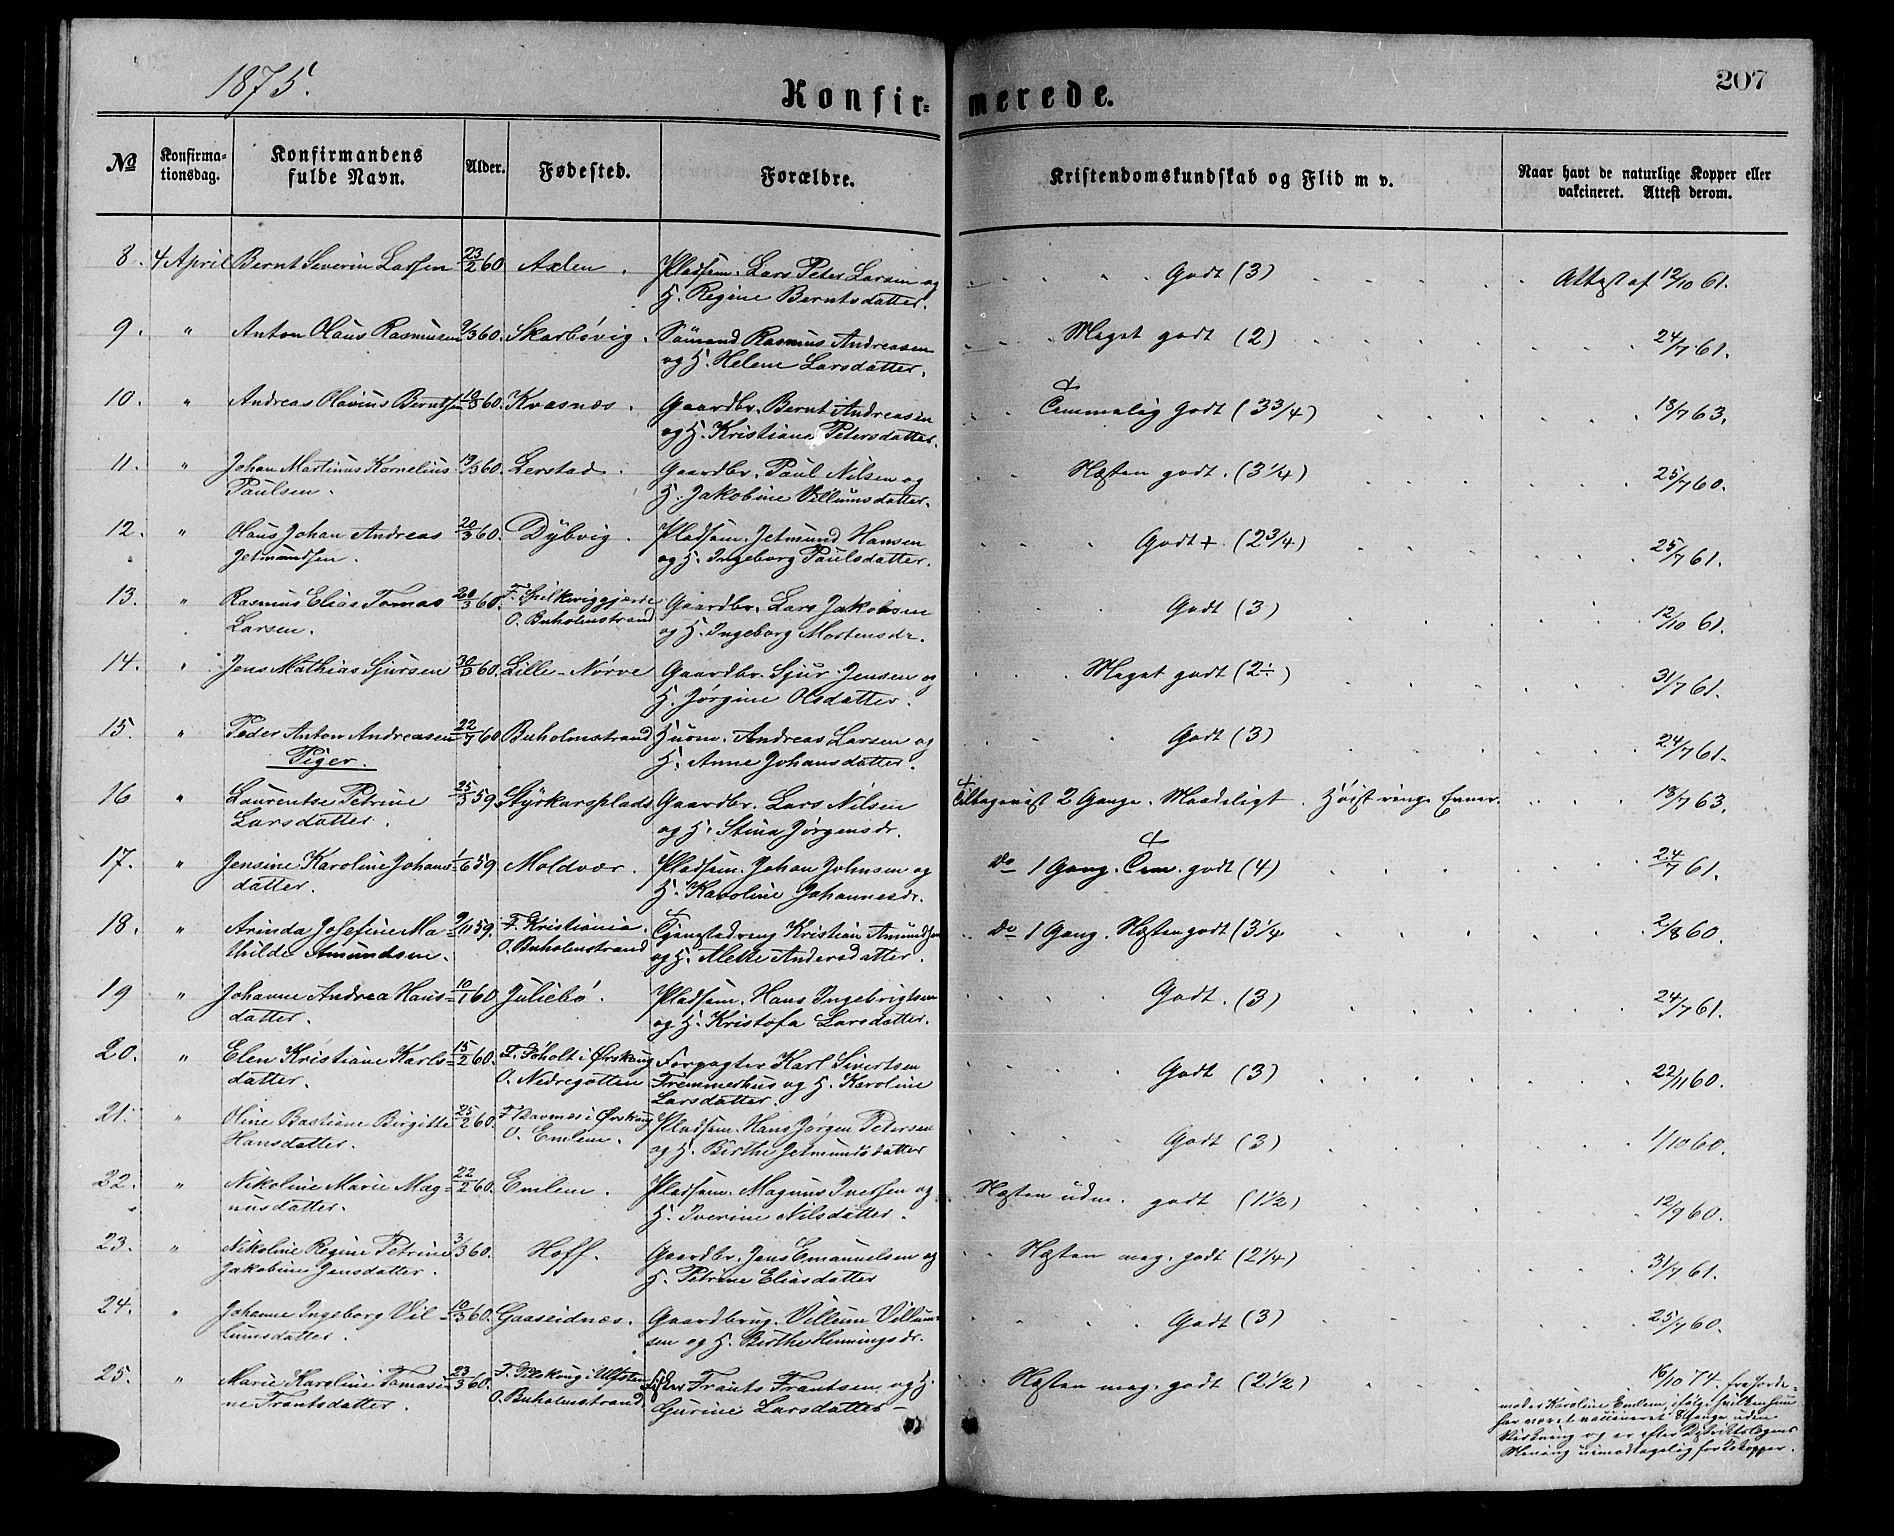 1875.
Konfir=merede.
207
No
Konfirma-
tionsdag.
Konfirmandens
fulde Navn.
Alder.
Fødested.
Forældre.
Kristendomskundskab og Flid m v.
Naar havt de naturlige Kopper eller
vakcineret. Attest derom.
8. 4 April Bernt Severin Larsen 23/2 60 Axlen. Pladsm. Lars Peter Larsen og Godt (3) Attest af 12/10 61.
H. Regine Berntsdatter.
9. " Anton Olaus Rasmusen 9/3 60. Skarbövig. Sömand Rasmus Andreasen Meget godt (2) 24/7 61.
og H. Helene Larsdatter.
10. " Andreas Olavius Berntsen 10/3 60. Kvasnæs. Gaardbr. Bernt Andreasen Temmelig Godt (3 3/4) 18/7 63.
og H. Kristiane Petersdatter.
11. " Johan Martinus Kornelius 19/3 60. Lerstad. Gaardbr. Paul Nilsen og Næsten godt. (3 1/4) 25/7 60.
Paulsen. H. Jakobine Villumsdatter.
12. " Olaus Johan Andreas 20/3 60. Dybvig. Pladsm. Jetmund Hansen Godt +. (2 3/4) 25/7 61.
Jetmundsen. og H. Ingeborg Paulsdatter.
13. " Rasmus Elias Tomas 20/3 60. F. Spilkeviggjerde Gaardbr. Lars Jakobsen Godt (3) 12/10 61.
Larsen. O. Buholmstrand og H. Ingeborg Mortensdr.
14. " Jens Mathias Sjursen 30/3 60. Lille-Nörve Gaardbr. Sjur Jensen og Meget godt (2÷) 31/7 61.
H. Jørgine Olsdatter.
15. " Peder Anton Andreasen 22/7 60 Buholmstrand Husm. Andreas Larsen og Godt (3) 24/7 61.
Piger. H. Anne Johansdatter.
16 " Laurentse Petrine 25/3 59. Styrkarsplads Gaardbr. Lars Nilsen Tilbagevist 2 Gange. Maadeligt. Höist ringe Evner. 18/7 63.
Larsdatter. og H. Stina Jørgensdr.
17. " Jensine Karoline Johans= 1/6 59 Moldvær. Pladsm. Johan Johnsen og do 1 Gang. Tem. godt (4) 24/7 61.
datter. H. Karoline Johannesdr.
18. " Arinda Josefine Ma= 9/11 59. F. Kristiania. Kristian Amundsen do 1 Gang. Næsten godt (3 1/4 2/8 60.
thilde Amundsen. O. Buholmstrand og H. Mette Andersdatter.
19 " Johanne Andrea Hans= 10/1 60 Juliebö. Pladsm. Hans Ingebrigtsen Godt. (3) 24/7 61.
datter. og H. Kristofa Larsdatter.
20. " Elen Kristiane Karls= 15/2 60. F. Söholt i Ørskoug Forpagter Karl Sivertsen Godt (3) 22/11 60.
datter. O. Nedregotten Fremmerhus og H. Karoline
Larsdatter.
21. " Oline Bastiane Birgitte 25/2 60. i Ørskoug Pladsm. Hans Jørgen Petersen Godt (3) 1/10 60.
Hansdatter. O. Emlem. og H. Birthe Jetmundsdatter
22. " Nikoline Marie Mag= 22/2 60. Emlem. Pladsm. Magnus Iversen og Næsten udm. godt (1 1/2) 12/9 60.
nusdatter. H. Iverine Nilsdatter.
23. " Nikoline Regine Petrine 3/3 60. Hoff. Gaardbr. Jens Emanuelsen og Næsten meg. godt (2 1/4) 31/7 61.
Jakobine Jensdatter. H. Petrine Eliasdatter
24. " Johanne Ingeborg Vil= 10/3 60. Gaaseidnæs. Gaardbrug. Villum Villum= Godt (3) 25/7 60.
lumsdatter. sen og H. Birthe Henningsdr.
25. " Marie Karoline Tomasi= 23/3 60. Fisker Frants Frantsen og H. Næsten meg. godt (2 1/2) 16/10 74. fra Jorde=
ne Frantsdatter. O. Buholmstrand Gurine Larsdatter moder Karoline Emlem, ifölge hvilken hun
har været vaccineret 8 Gange uden
Virkning og er efter Distriktslægens
Mening uimodtagelig for Kopper.